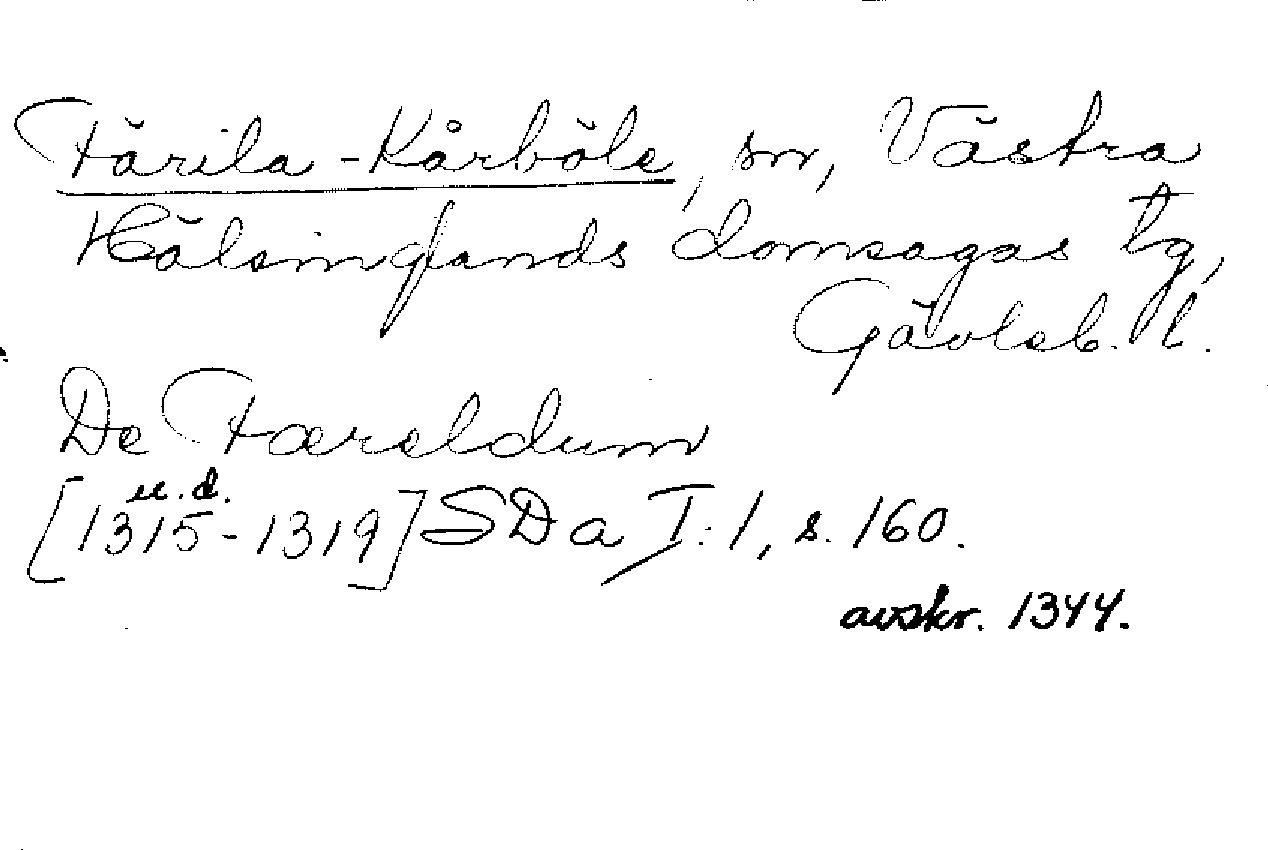 Färila-Kårböle, sn, Västra
Hälsinglands domsagas tg,
Gävleb. l.
De Færeldum
u.d.
[1315-1319] SD a I:1, s. 160.
avskr. 1344.